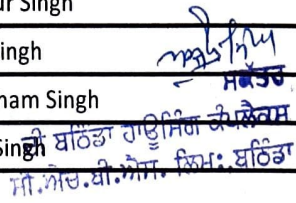 ur Singh
ingh
ਸਕੱਤਰ
nam Singh
Singh
ਦੀ ਬਠਿੰਡਾ ਹਾਊਸਿੰਗ ਕੰਪਲੈਕਸ
ਸੀ.ਐਚ.ਬੀ.ਐਸ. ਲਿਮ: ਬਠਿੰਡਾ